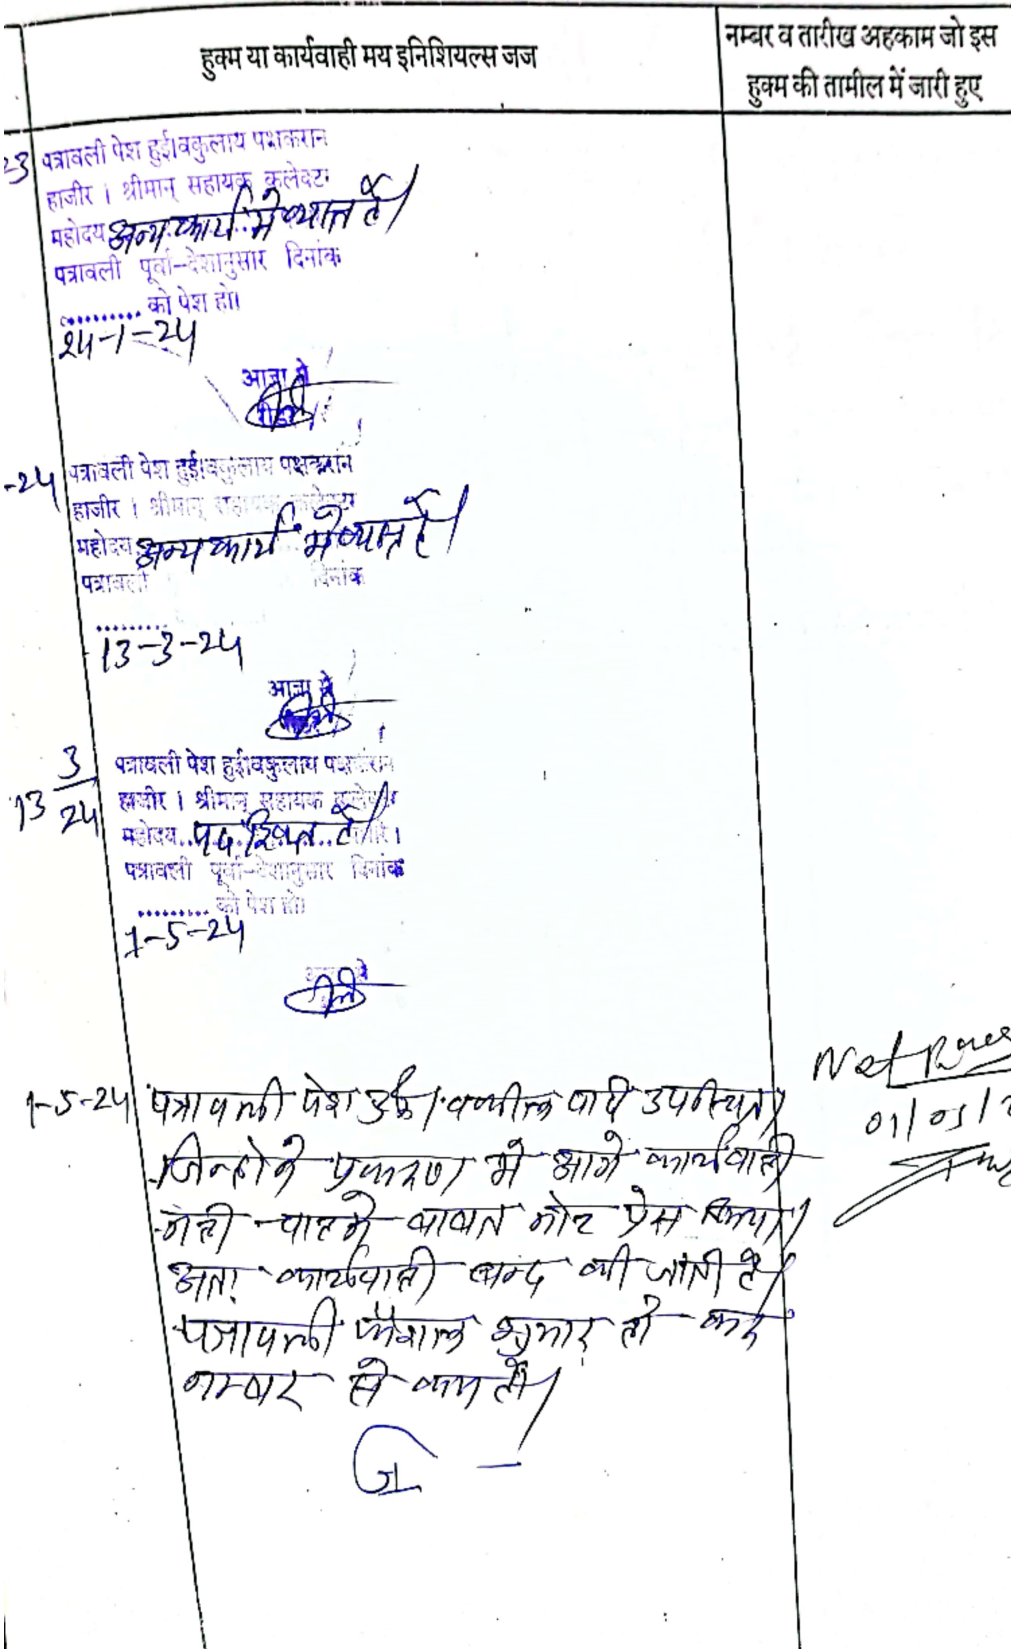 हुक्म या कार्यवाही मय इनिशियल्स जज
नम्बर व तारीख अहकाम जो इस
हुक्म की तामील में जारी हुए
23 पत्रावली पेश हुई।वकुलाय पक्षकरान
हाजीर । श्रीमान् सहायक कलेक्टर
महोदय अन्य कार्य मे व्यस्त है।
पत्रावली पूर्वा-देशानुसार दिनांक
......... को पेश हो।
24-1-24
आज्ञा से
रीडर
-24 पत्रावली पेश हुई।वकुलाय पक्षकरान
हाजीर । श्रीमान् सहायक कलेक्टर
महोदय अन्य कार्य मे व्यस्त है।
पत्रावली दिनांक
.........
13-3-24
आज्ञा से
13 3/24 पत्रावली पेश हुई।वकुलाय पक्षकरान
हाजीर । श्रीमान् सहायक कलेक्टर
महोदय.. पद रिक्त है।
पत्रावली पूर्वा-देशानुसार दिनांक
......... को पेश हो।
1-5-24
Not Press
01/05/2
1-5-24 पत्रावली पेश हुई। वकील वादी उपस्थित।
जिन्होने प्रकरण मे आगे कार्यवाही
नही चाहने बाबत नोट प्रेस किया।
अतः कार्यवाही बन्द की जाती है।
पत्रावली फैशल शुमार हो कर
नम्बर से कम हो।